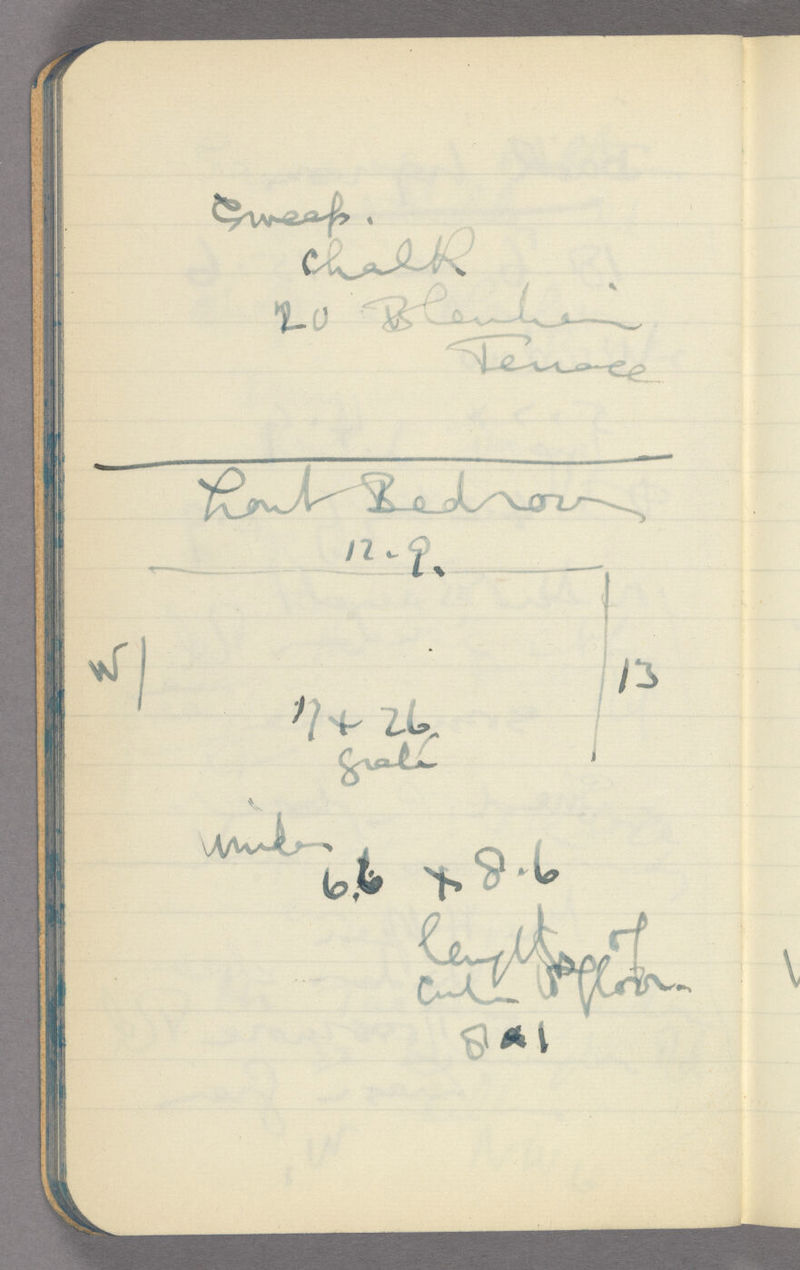 Sweep.
Chalk
20 Blenheim
Terrace
Front Bedroom
12.9.
W
13
17 x 26
grate
6.6 x 8.6
length of
to floor
8